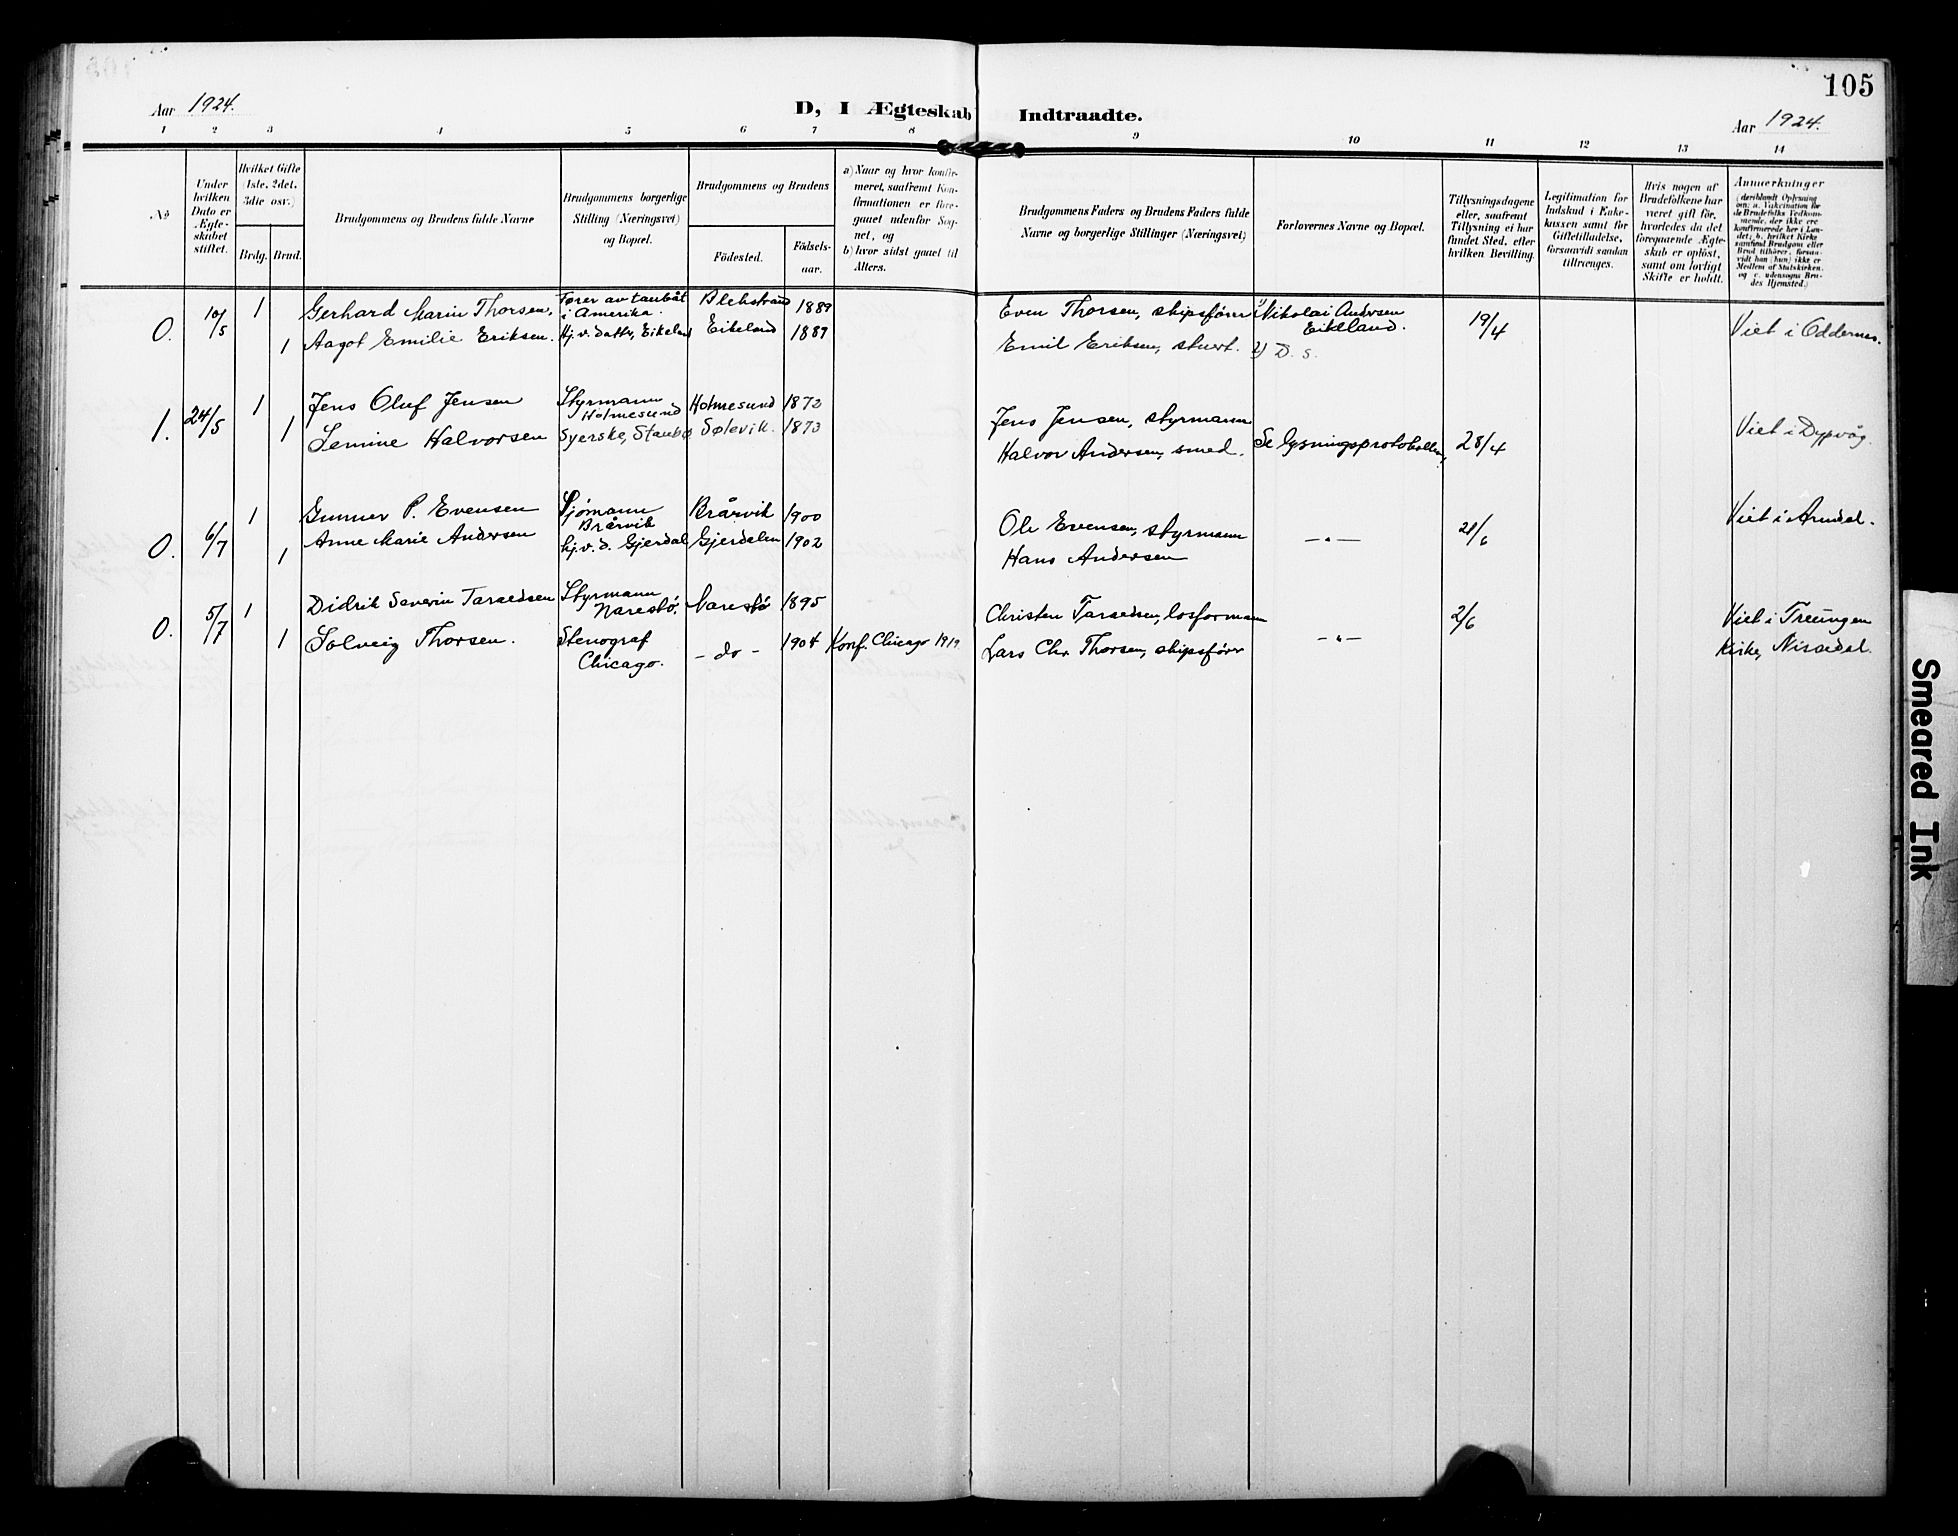 105
Aar 1924.
D, I Ægteskab Indtraadte.
Aar 1924.
1 2 3 4 5 6 7 8 9 10 11 12 13 14
No
Under hvilken Dato er Ægte-skabet stiftet.
Hvilket Gifte (1ste, 2det, 3die osv.)
Brdg. Brud.
Brudgommens og Brudens fulde Navne
Brudgommens borgerlige Stilling (Næringsvei) og Bopæl.
Brudgommens og Brudens
Födested.
Födsels-aar.
a) Naar og hvor konfir-meret, saafremt Kon-firmationen er fore-gaaet udenfor Sog-net, og
b) hvor sidst gaaet til Alters.
Brudgommens Faders og Brudens Faders fulde Navne og borgerlige Stillinger (Næringsvei)
Forlovernes Navne og Bopæl.
Tillysningsdagene eller, saafremt Tillysning ei har fundet Sted, efter hvilken Bevilling.
Legitimation for Indskud i Enke-kassen samt for Giftetilladelse, forsaavidt saadan tiltrænges.
Hvis nogen af Brudefolkene har været gift för, hvorledes da det foregaaende Ægte-skab er oplöst, samt om lovligt Skifte er holdt.
Anmærkninger
(deriblandt Oplysning om: a. Vakcination for de Brudefolks Vedkom-mende, der ikke ere konfirmerede her i Lan-det; b. hvilket Kirke-samfund Brudgom eller Brud tilhörer, forsaa-vidt han (hun) ikke er Medlem af Statskirken, og c. udensogns Bru-des Hjemsted.)
0. 10/5 1 Gerhard Marin Thorsen, Fører av taubåt i Amerika. Blekstrand 1889 Even Thorsen, skipsfører 1) Nikolai Andersen Eikeland. 19/4 Viet i Oddernes.
1 Aagot Emilie Eriksen. Hj.v. datter, Eikeland Eikeland 1889 Emil Eriksen, stuert. 2) D. s.
1. 24/5 1 Jens Oluf Jensen Styrmann Holmesund Holmesund 1872 Jens Jensen, styrmann Se lysningsprotokollen, 28/4 Viet i Dypvåg.
1 Semine Halvorsen Syerske, Staubø Sølevik. 1873 Halvor Andersen, smed.
0. 6/7 1 Gunner P. Evensen Sjømann Brårvik Brårvik 1900 Ole Evensen, styrmann — " — 21/6 Viet i Arendal.
1 Anne Marie Andersen hj.v.d. Gjerdal Gjerdalen 1902 Hans Andersen
0. 5/7 1 Didrik Severin Taraldsen Styrmann Narestø. Narestø 1895 Christen Taraldsen, losformann — " — 2/6 Viet i Treungen Kirke, Nissedal.
1 Solveig Thorsen. Stenograf Chicago. — do — 1904 Konf. Chicago 1919 Lars Chr. Thorsen, skipsfører
Smeared Ink